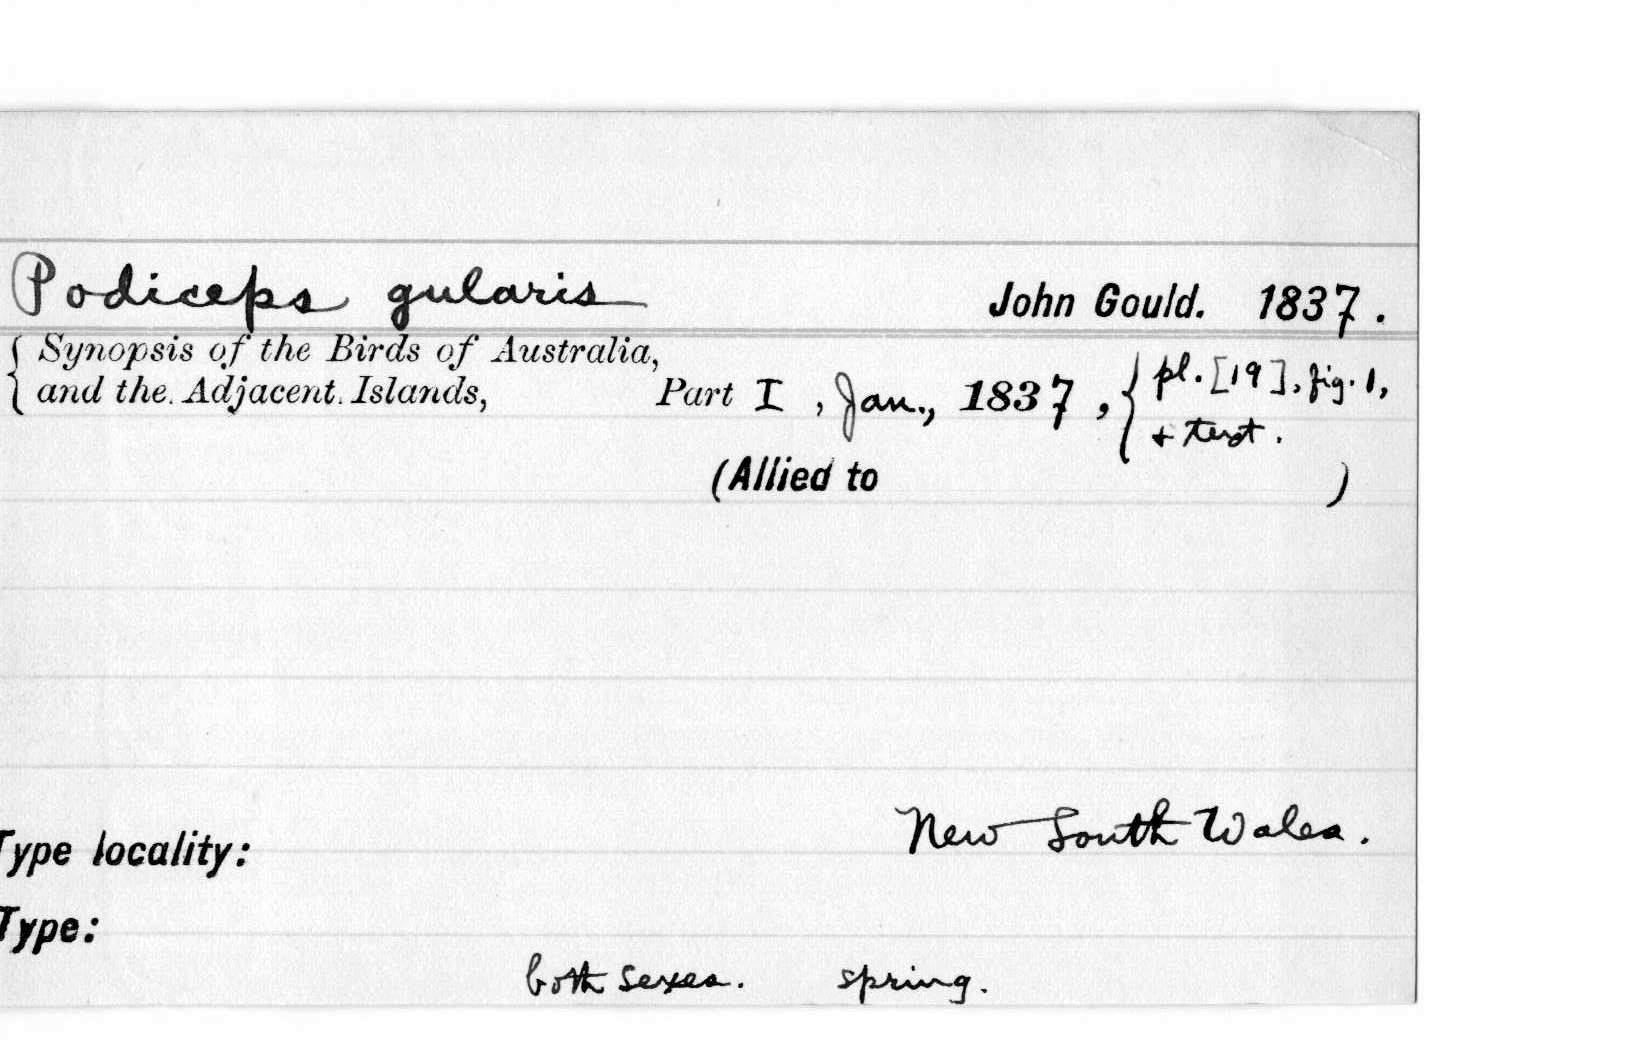 Podiceps gularis John Gould. 1837.
{ Synopsis of the Birds of Australia,
and the Adjacent Islands, Part I, Jan., 1837, { pl. [19], fig. 1,
+ text.
(Allied to )
New South Wales.
Type locality:
Type:
both sexes. spring.